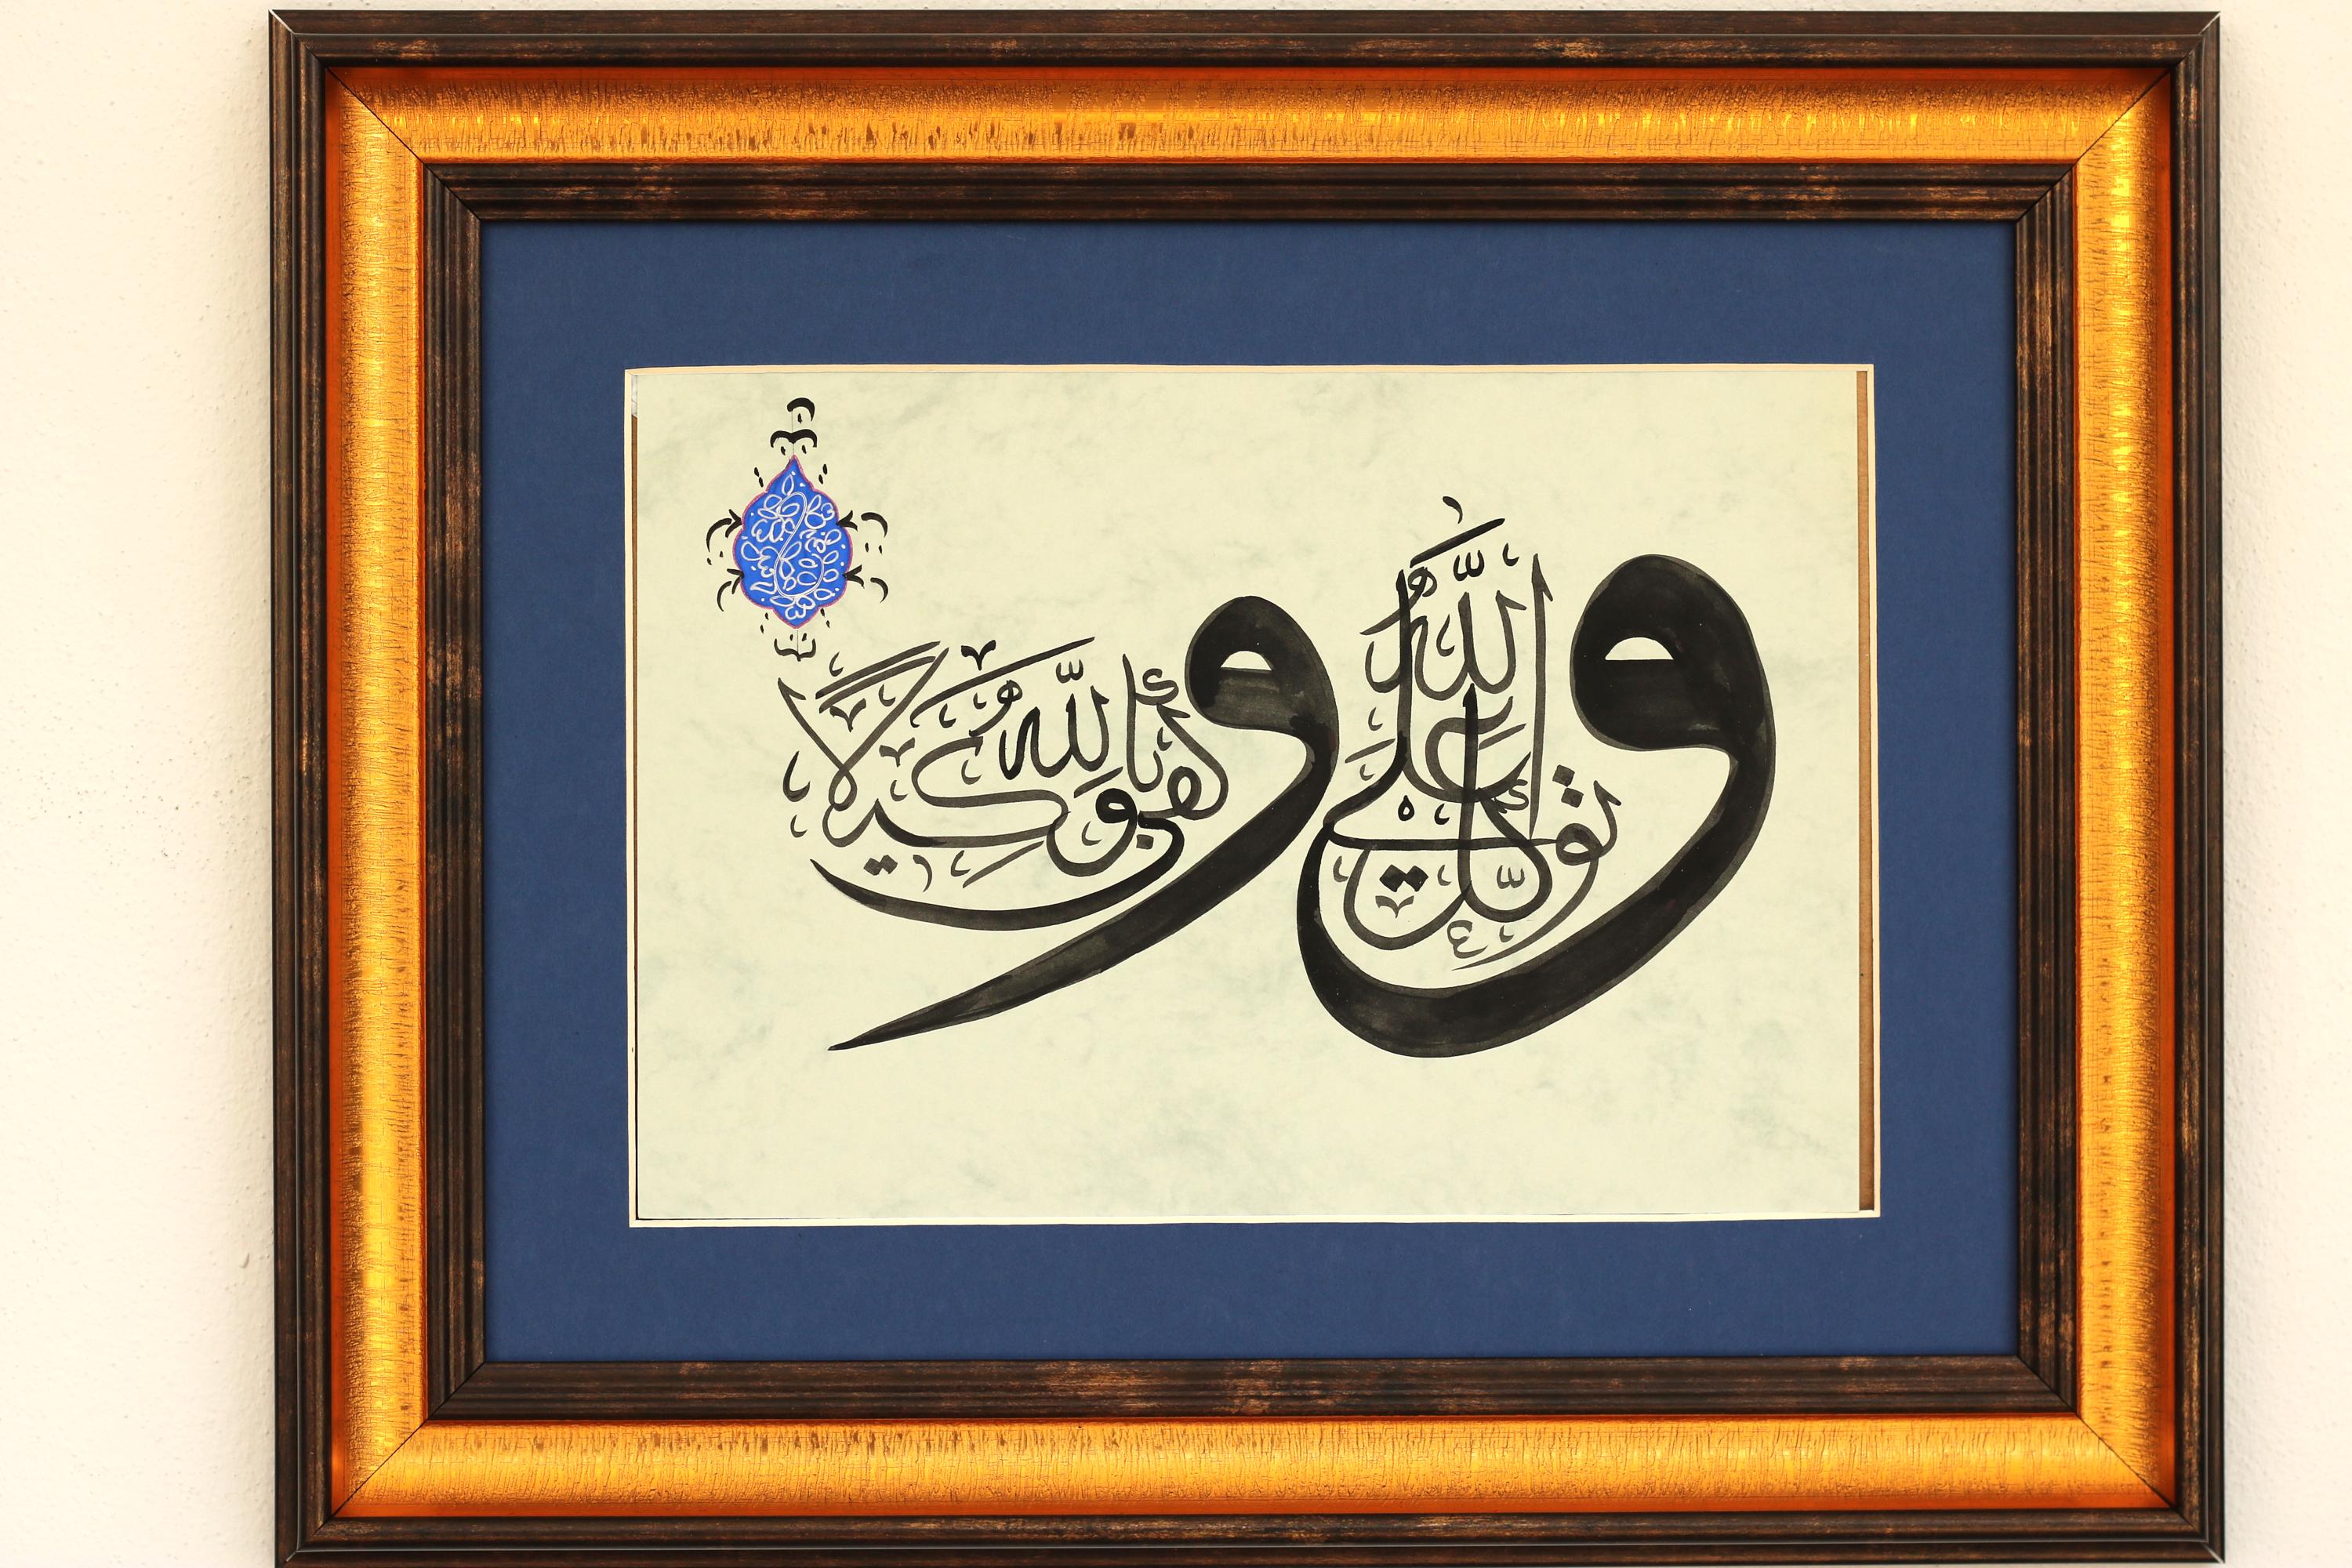 وتوكل على الله وكفى بالله وكيلا